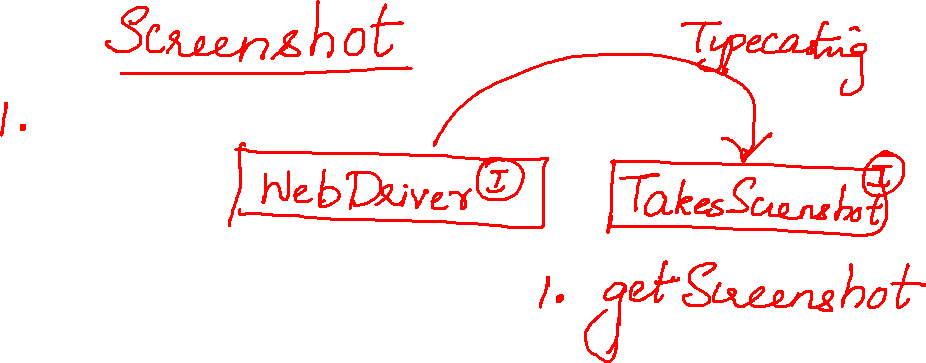 Screenshot
Typecasting
1.
WebDriver I
TakesScreenshot I
1. getScreenshot